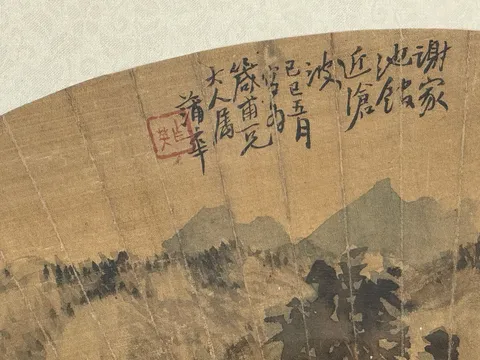 謝家
池館
近滄
波
己巳五月
寫為
甫兄
大人属
蒲華